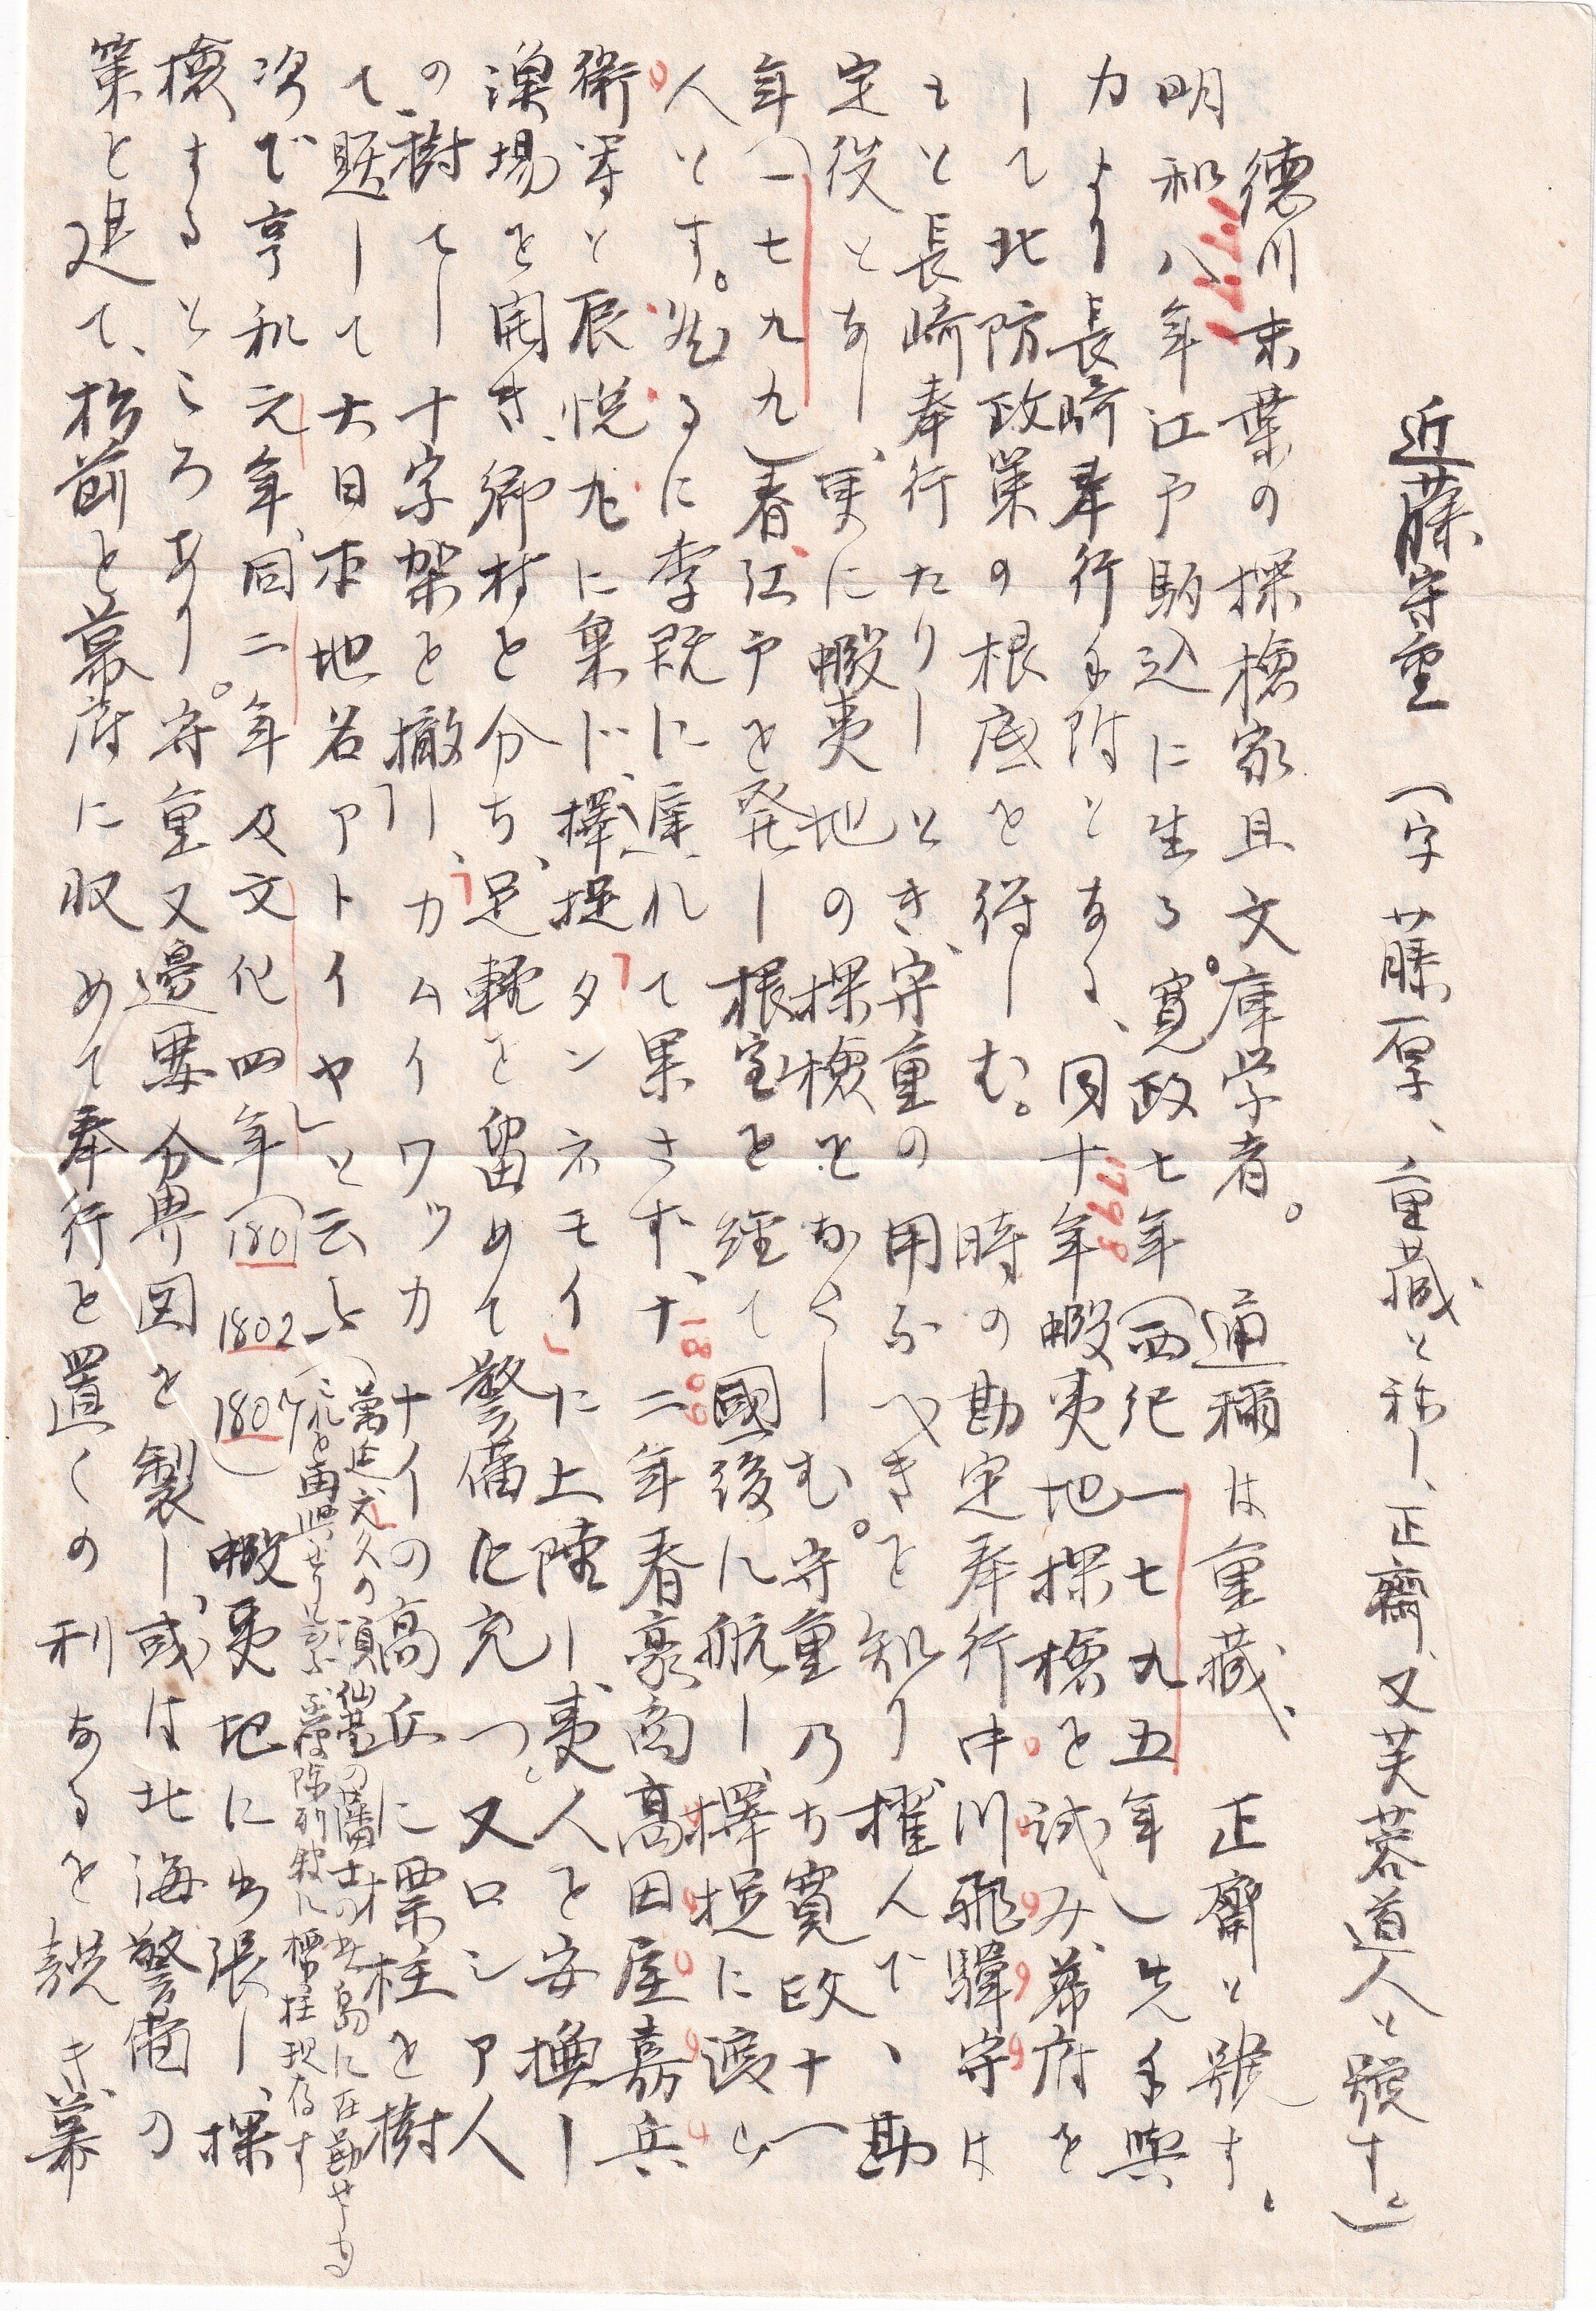 近藤守重 (字藤厚、重蔵と称し、正齋、又芙蓉道人と號す。)
徳川末葉の探検家且文庫学者。通稱は重蔵、正齋と號す。
1771
明和八年江戸駒込に生る。寛政七年(西紀一七九五年)先手與
力より長崎奉行手附となる、同十年蝦夷地探検を試み、幕府を
1798
して北防政策の根底を得しむ。時の勘定奉行中川飛騨守は
もと長崎奉行たりしとき、守重の用ふべきを知り擢んで、勘
定役となし、更に蝦夷地の探検をなさしむ。守重乃ち寛政十一
年(一七九九)春、江戸を発し根室を経て國後に航し、擇捉に渡ら
んとす。然るに季既に遅れて果さず、十二年春豪商高田屋嘉兵
1800
衛等と辰悦丸に乗じ、擇捉「タンネモイ」に上陸し、夷人を安撫し
漁場を開き、郷村を分ち、足軽を留めて警備に充つ。又ロシア人
の樹てし十字架を撤し、「カムイワッカナイの高丘に標柱を樹
て題して大日本地名アトイヤ」と云ふ(萬延文久の頃仙臺の藩士の此島に在勤せしもの
これを再興せり 陳列館に標柱現存す
次で享和元年、同二年及文化四年(1801 1802 1807)蝦夷地に出張し、探
検するところあり。守重又邊要分界図を製し、或は北海警備の
策を建て、松前を幕府に収めて奉行を置くの利あるを説き、幕